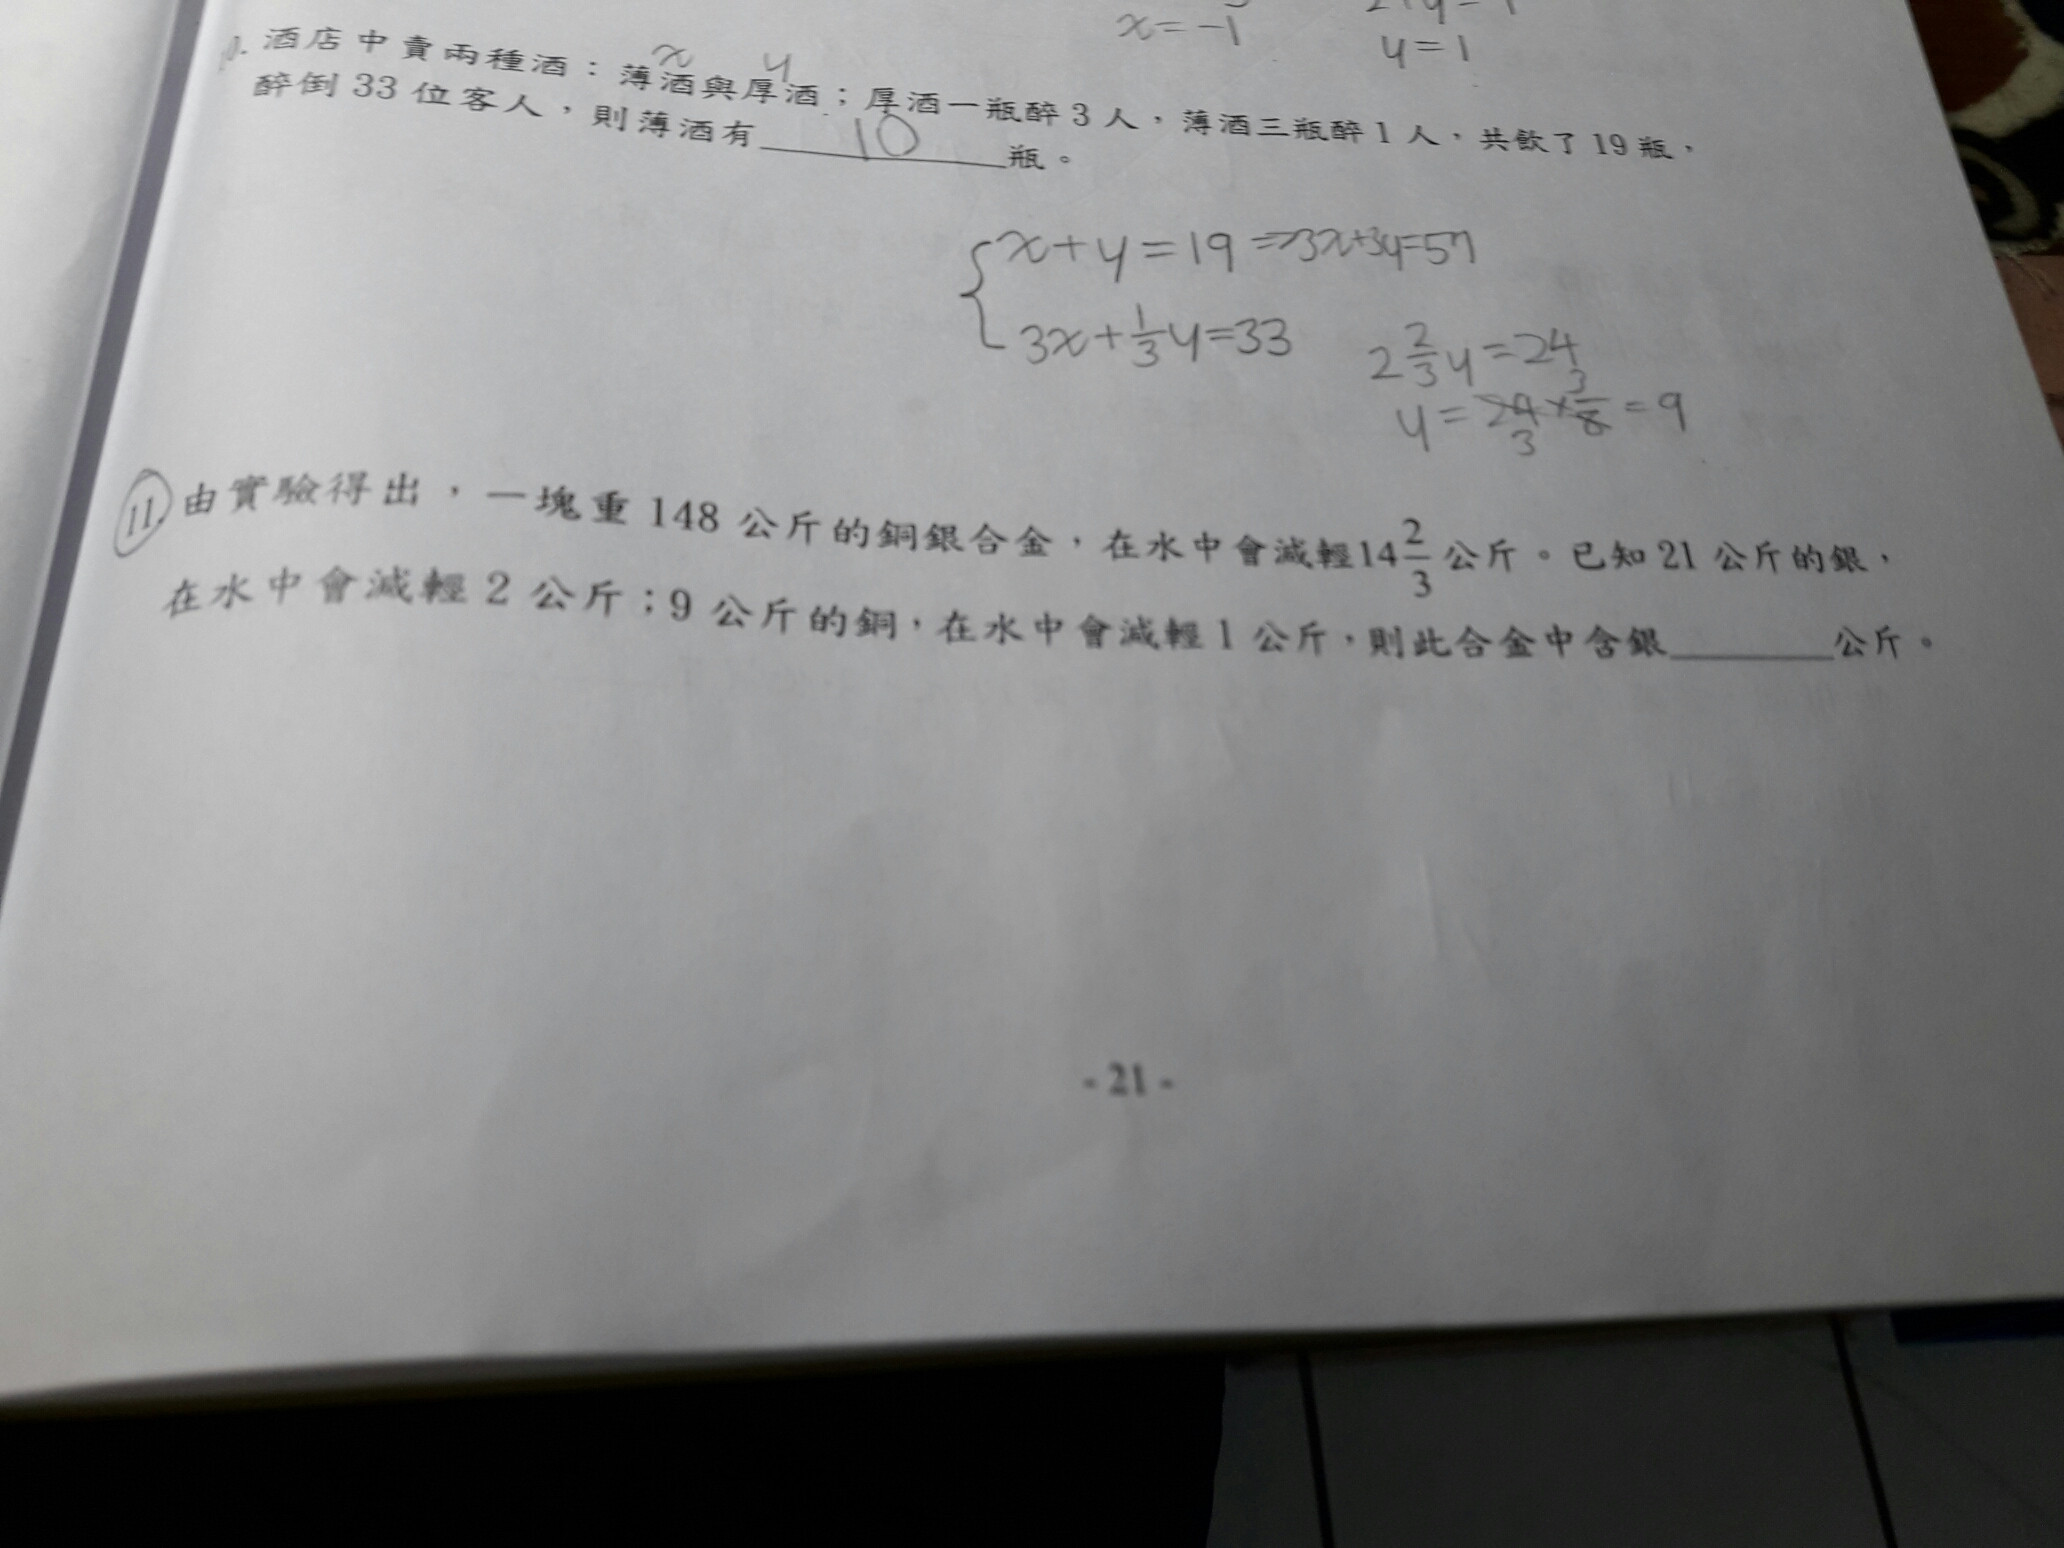 x=-1
y=1
10. 酒店中賣兩種酒：薄酒與厚酒；厚酒一瓶醉3人，薄酒三瓶醉1人，共飲了19瓶，
x y
醉倒33位客人，則薄酒有 10 瓶。
x+y=19⇒3x+3y=57
3x+1/3y=33
2 2/3y=24
y=24/3×3/8=9
11. 由實驗得出，一塊重148公斤的銅銀合金，在水中會減輕14 2/3公斤。已知21公斤的銀，
在水中會減輕2公斤；9公斤的銅，在水中會減輕1公斤，則此合金中含銀______公斤。
- 21 -